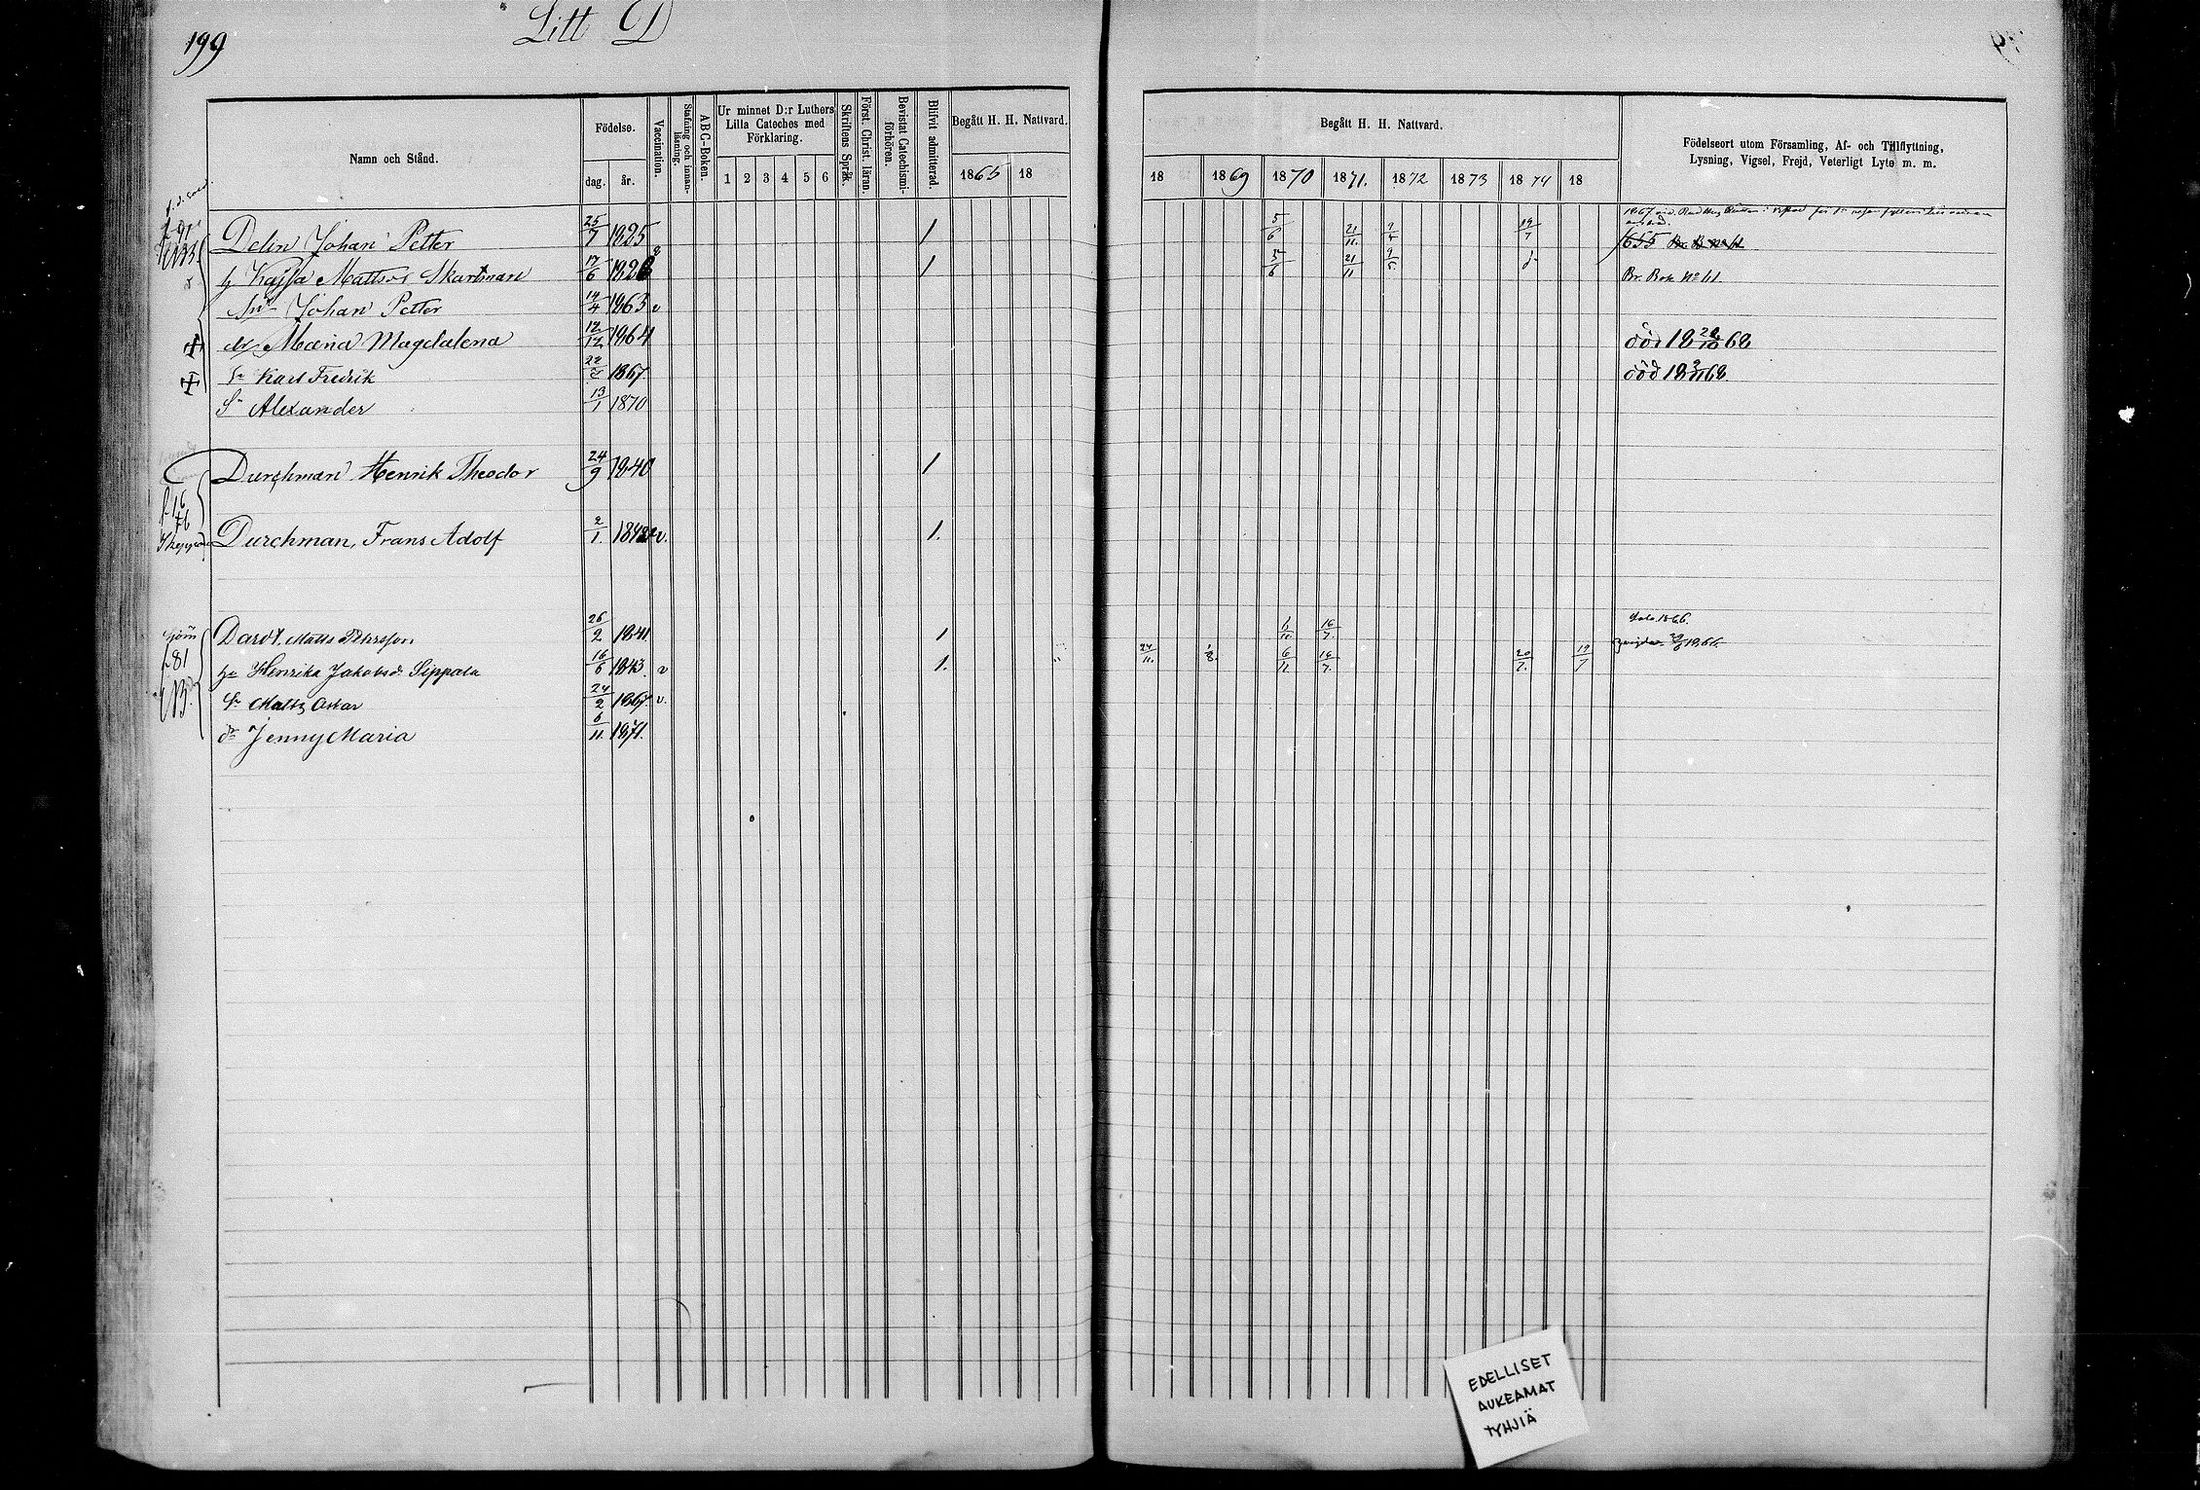 199
Litt D
Namn och Stånd.
Födelse.
dag. år.
Vaccination.
Stafning och innanläsning.
ABC-Boken.
Ur minnet D:r Luthers Lilla Cateches med Förklaring.
1 2 3 4 5 6
Skriftens Språk.
Först. Christ. läran.
Bevistat Catechismiförhören.
Blifvit admitterad.
Begått H. H. Nattvard.
1865 18
Begått H. H. Nattvard.
18 1869 1870 1871. 1872 1873 1874 18
Födelseort utom Församling, Af- och Tillflyttning,
Lysning, Vigsel, Frejd, Veterligt Lyte m. m.
Delin Johan Petter 25/7 1825 1 5/6 21/11 9/4 19/7
h Kajsa Mattsd. Skartman 17/6 1 5/6 21/11 Br. Bok No 41.
Sn Johan Petter 14/4 1863 v
Maria Magdalena 12/12 1864 död 18 28/10 68
Sn Karl Fredrik 1867. död 18 68.
Sn Alexander 13/1 1870
Durchman Henrik Theodor 24/9 1840 1
Durchman, Frans Adolf 2/1 v. 1.
Matts 26/2 1841. 1 6/11 16/7. 1866.
hu Henrika Jakobsd. Sippola 16/6 1843. v 1. 24/11. 1/8. 6/11 16/7. 20/7. 19/7
Sn Matts Oskar 24/2 1867. v.
dr Jenny Maria 6/11 1871.
EDELLISET
AUKEAMAT
TYHJIÄ